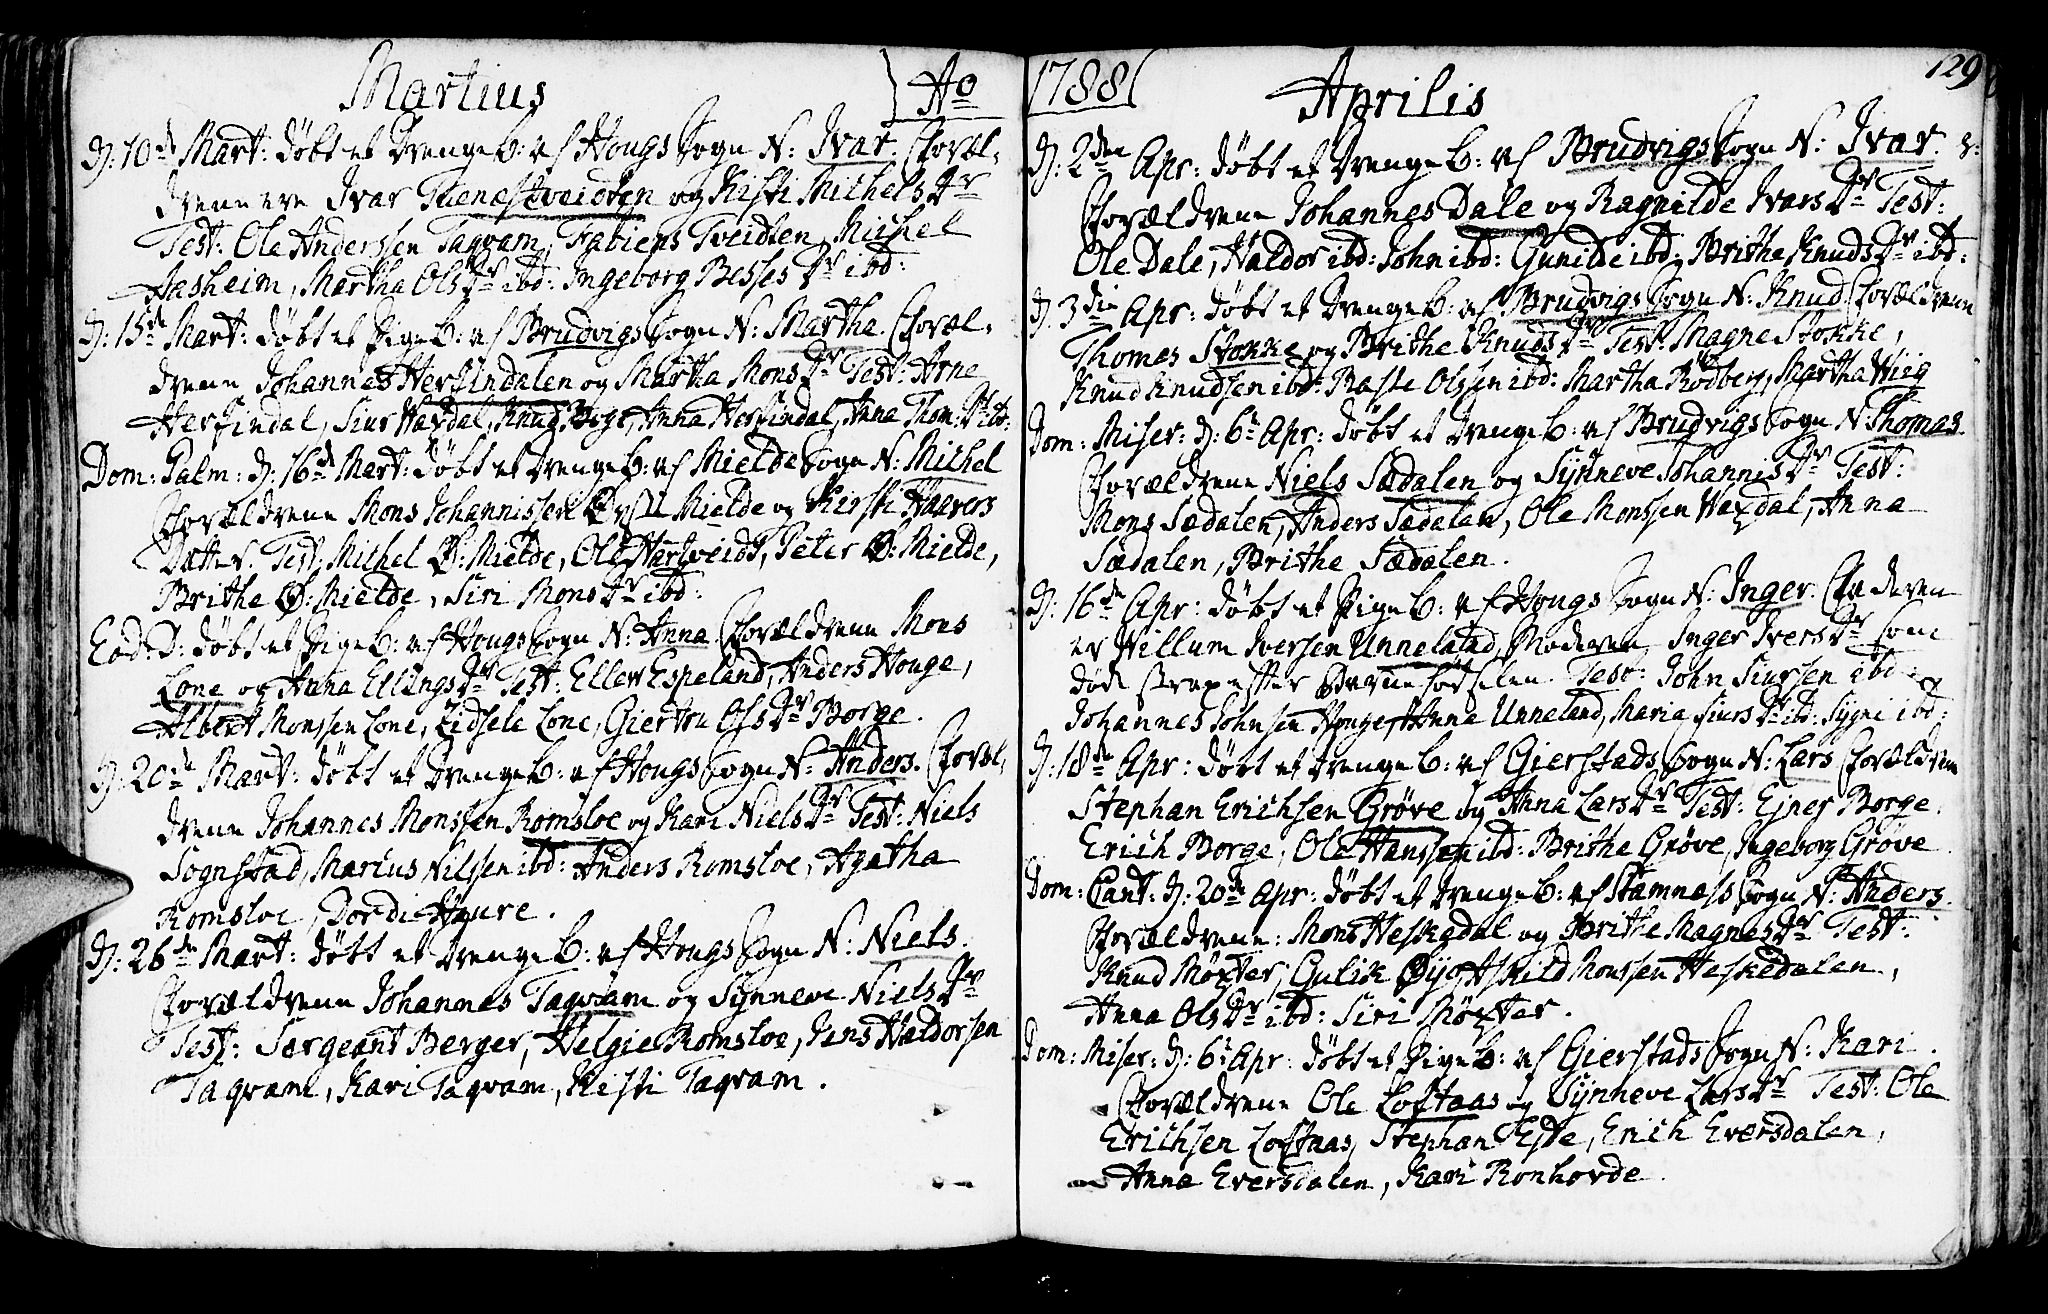 Martius
Ao
D: 10de Mart: døbt et Drengeb: af Hougs Sogn N: Ivar. Foræl-
drene ere Ivar Tuenestveidten og Kisti Michels Dr
Test: Ole Anderssen Taqvam, Fabiens Tveidten, Michel
Aasheim, Martha Ols Dr ibd: Ingeborg Besses Dr ibd:
D: 15de Mart: døbt et Pigeb: af Brudvigs Sogn N: Martha. Foræl-
drene Johannes Herfindalen og Martha Mons Dr Test: Arne
Herfindal, Siur Waxdal, Knud Bege, Anna Herfindal, Anna Thom: Dr ib:
Dom: Palm: D: 16de Mart: døbt et Drengeb: af Mielde Sogn N: Michel
Forældrene Mons Johannissen Mielde og Kirsti Haavers
Datter. Test: Michel Ø: Mielde, Ole Hartveidt, Peter Ø: Mielde,
Brithe Ø: Mielde, Siri Mons Dr ibd:
Eod: D: døbt et Pigeb: af Hougs Sogn N: Anna Forældrene Mons
Lone og Anna Ellings Dr Test: Ellew Espeland, Anders Houge,
Albert Monssen Lone, Zidsele Lone, Giertru Ols Dr Borge.
D: 20de Mart: døbt et Drengeb: af Hougs Sogn N: Anders. Foræl-
drene Johannes Monssen Romsloe og Kari Niels Dr Test: Niels
Sognstad, Marius Nilssen ibd: Anders Romsloe, Agatha
Romsloe, Dordi Houre.
D: 26de Mart: døbt et Drengeb: af Hougs Sogn N: Niels.
Forældrene Johannes Taqvam og Synneve Niels Dr
Test: Sergeant Berger, Helgie Romsloe, Jens Haldorsen
Taqvam, Kari Taqvam, Kisti Taqvam.
1788
Aprilis
129
D: 2den Apr: døbt et Drengeb: af Brudvigs Sogn N: Ivar.
Forældrene Johannes Dale og Ragnilde Ivars Dr Test:
Ole Dale, Haldor ibd: John ibd: Gunilde ibd: Brithe Knuds Dr ibd:
D: 3die Apr: døbt et Drengeb: af Brudvigs Sogn N: Knud. Forældrene
Thomas Stokke og Brithe Knuds Dr Test: Magne Stokke,
Knud Knudsen ibd: Raste Olssen ibd: Martha Rødberg, Martha Wiig
Dom: Miser: D: 6te Apr: døbt et Drengeb: af Brudvigs Sogn N: Thomas
Forældrene Niels Sædalen og Synneve Johannis Dr Test:
Mons Sædalen, Anders Sædalen, Ole Monssen Waxdal, Anna
Sædalen, Brithe Sædalen.
D: 16de Apr: døbt et Pigeb: af Hougs Sogn N: Inger. Faderen
er Willum Iversen Unneland, Moderen Inger Ivers Dr som
døde strax efter Barnefødselen. Test: John Siursen ibd:
Johannes Johnsen Houge, Anna Unneland, Maria Siurs Dr ibd: Sygni ibd:
D: 18de Apr: døbt et Drengeb: af Gierstads Sogn N: Lars Forældrene
Stephan Erichsen Grøve og Anna Lars Dr Test: Ejner Borge.
Erich Borge, Ole Hanssen ibd: Brithe Grøve, Ingeborg Grøve.
Dom: Cant: D: 20de Apr: døbt et Drengeb: af Stamness Sogn N: Anders.
Forældrene: Mons Heskedal og Brithe Magnes Dr Test:
Knud Møxter, Gulik Øye, Askild Monssen Heskedalen,
Anna Ols Dr ibd: Siri Møxter.
Dom: Miser: D: 6te Apr: døbt et Pigeb: af Gierstads Sogn N: Kari.
Forældrene Ole Loftaas og Synneve Lars Dr Test: Ole
Erichsen Loftaas, Stephan Tofte, Erich Eversdalen,
Anna Eversdalen, Kari Ronhovde.